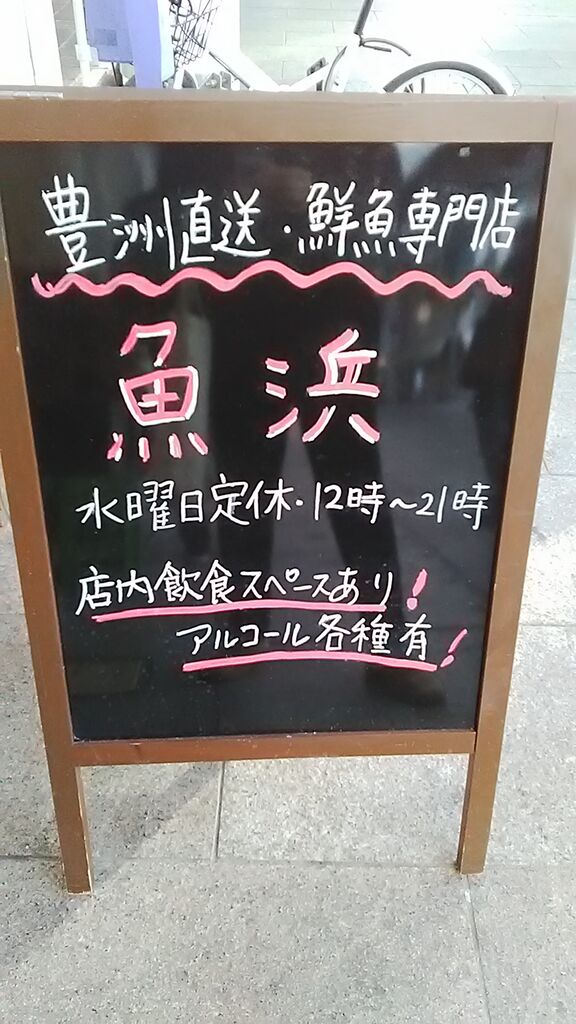 豊洲直送・鮮魚専門店
魚浜
水曜日定休・12時～21時
店内飲食スペースあり!
アルコール各種有!